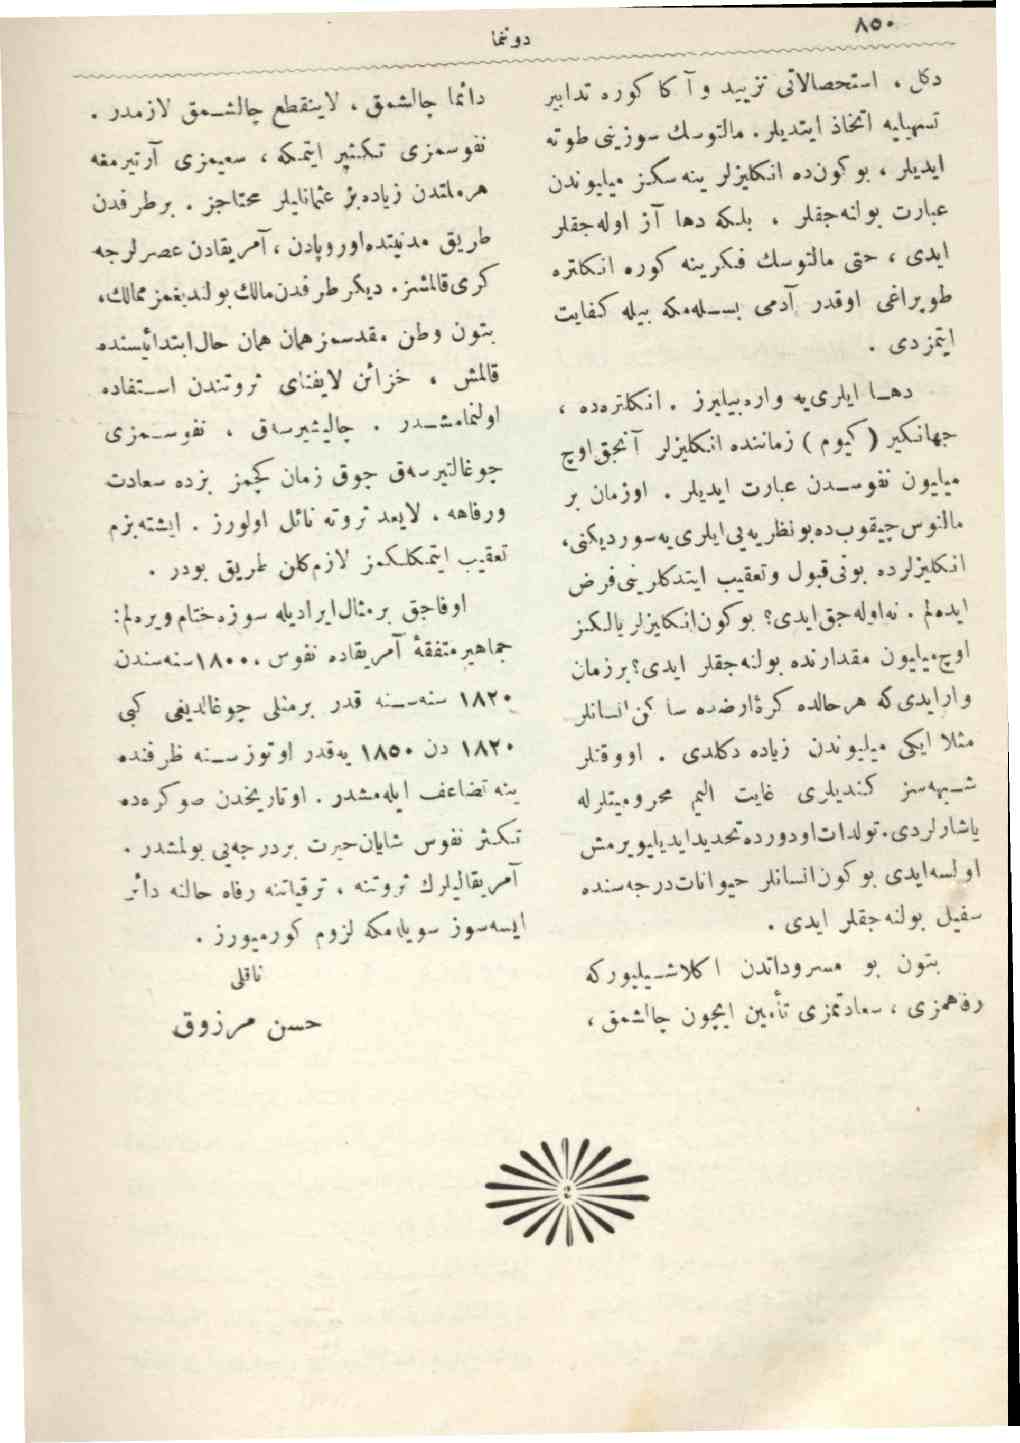 ٨٥٠
دوننما
دكل ، استحصالاتى تزييد و آ كا كوره تدابير
تسهيليه اتخاذ ايتديلر. مالتوسك سوزينى طوته
ايديلر ، بوكون‌ده انكليزلر ينه سكز ميليوندن
عبارت بولنه‌جقلر . بلكه دها آز اوله‌جقلر
ايدى ، حتى مالتوسك فكرينه كوره انكلتره
طوپراغى اوقدر آدمى بسله‌مكه بيله كفايت
ايتمزدى .
دها ايلرى‌يه واره‌بيليرز . انكلتره‌ده ،
جهانكير ( كيوم ) زماننده انكليزلر آنجق اوچ
ميليون نفوسدن عبارت ايديلر . اوزمان بر
مالتوس چيقوب‌ده بونظريه‌يى ايلرى‌يه سورديكنى،
انكليزلرده بونى قبول وتعقيب ايتدكلرينى فرض
ايده‌لم . نه‌اوله‌جق‌ايدى؟ بوكون انكليزلر يالكز
اوچ‌ميليون مقدارنده بولنه‌جقلر ايدى؟ برزمان
وارايدى‌كه هرحالده كرۀارضده ساكن انسانلر
مثلا ايكى ميليوندن زياده دكلدى . اووقتلر
شبهه‌سز كنديلرى غايت اليم محروميتلرله
ياشارلردى. تولدات اودورده تحديدايديليويرمش
اولسه‌ايدى بوكون انسانلر حيوانات درجه‌سنده
سفيل بولنه‌جقلر ايدى .
بتون بو مسروداتدن اكلاشيليوركه
رفاهمزى ، سعادتمزى تأمين ايچون چالشمق ،
دائما چالشمق ، لاينقطع چالشمق لازمدر .
نفوسمزى تكثير ايتمكه ، سعيمزى آرتيرمغه
هرملتدن زياده‌بز عثمانليلر محتاجز . برطرفدن
طريق مدنيتده‌اوروپادن ، آمريقادن عصرلرجه
كرى‌قالمشز. ديكر طرفدن‌مالك بولنديغمز ممالك،
بتون وطن مقدسمز همان همان حال ابتدائيسنده
قالمش ، خزائن لايفناى ثروتندن استفاده
اولنمامشدر . چاليشيرسه‌ق ، نفوسمزى
چوغالتيرسه‌ق چوق زمان كچمز بزده سعادت
ورفاهه ، لايعد ثروته نائل اولورز . ايشته بزم
تعقيب ايتمكلكمز لازم‌كلن طريق بودر .
اوفاجق برمثال ايراديله سوزه ختام ويره‌لم:
جماهير متفقۀ آمريقاده نفوس، ١٨٠٠ سنه‌سندن
١٨٢٠ سنه‌سنه قدر برمثلى چوغالديغى كبى
١٨٢٠ دن ١٨٥٠ يه‌قدر اوتوز سنه ظرفنده
ينه تضاعف ايله‌مشدر . اوتاريخدن صوكره‌ده
تكثر نفوس شايان حيرت بردرجه‌يى بولمشدر .
آمريقاليلرك ثروتنه ، ترقياتنه رفاه حالنه دائر
ايسه‌سوز سويله‌مكه لزوم كورميورز .
ناقلى
حسن مرزوق